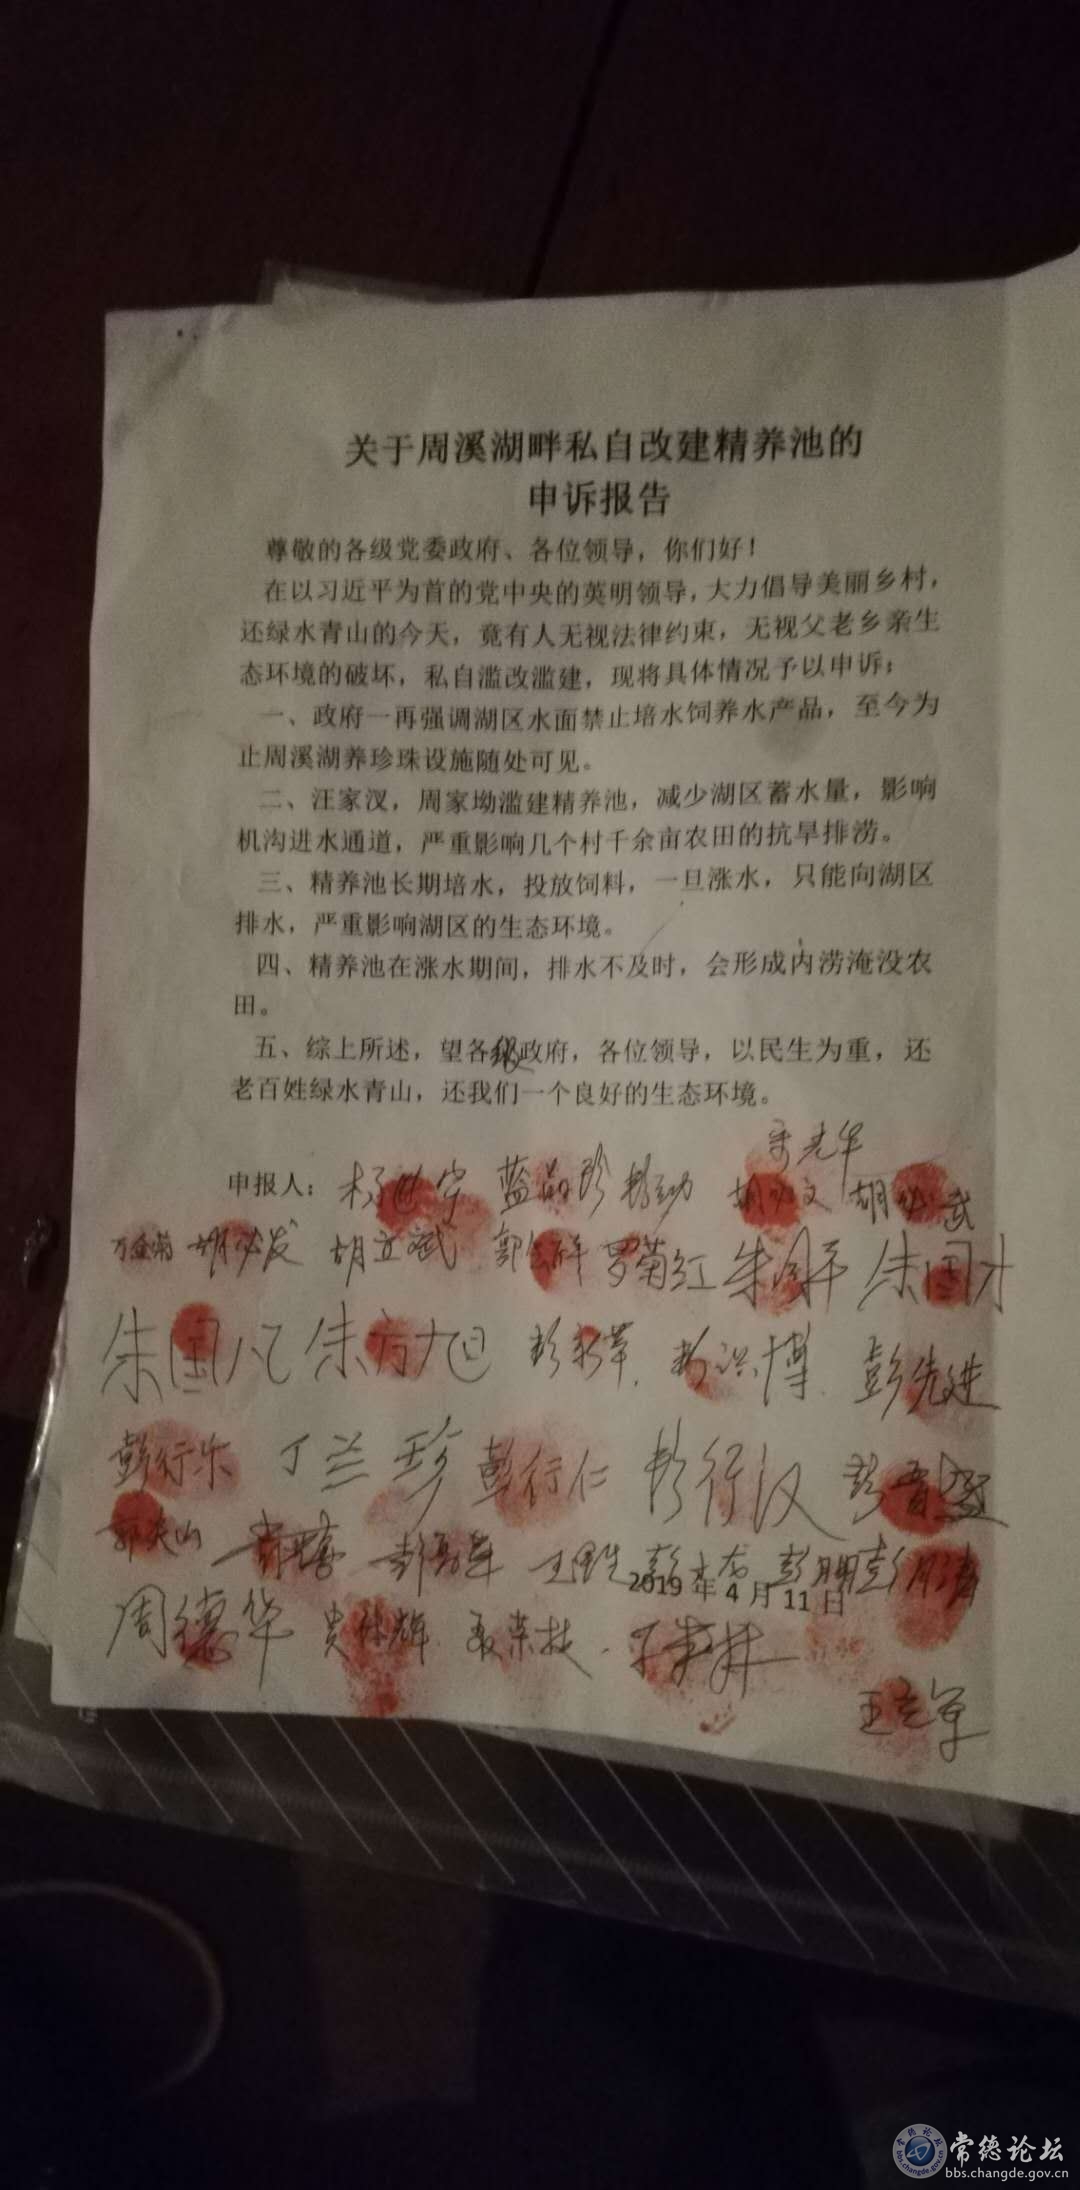 关于周溪湖畔私自改建精养池的
申诉报告
尊敬的各级党委政府、各位领导，你们好！
在以习近平为首的党中央的英明领导，大力倡导美丽乡村，
还绿水青山的今天，竟有人无视法律约束，无视父老乡亲生
态环境的破坏，私自滥改滥建，现将具体情况予以申诉：
一、政府一再强调湖区水面禁止培水饲养水产品，至今为
止周溪湖养珍珠设施随处可见。
二、汪家汊，周家坳滥建精养池，减少湖区蓄水量，影响
机沟进水通道，严重影响几个村千余亩农田的抗旱排涝。
三、精养池长期培水，投放饲料，一旦涨水，只能向湖区
排水，严重影响湖区的生态环境。
四、精养池在涨水期间，排水不及时，会形成内涝淹没农
田。
五、综上所述，望各级政府，各位领导，以民生为重，还
老百姓绿水青山，还我们一个良好的生态环境。
申报人：
胡立斌 罗菊红 朱国平 朱国才
朱国凡 朱方旭 彭先进
彭行乐 丁兰珍 彭行仁 彭行汉
2019 年 4 月 11 日
周德华
王立军
常德论坛
bbs.changde.gov.cn